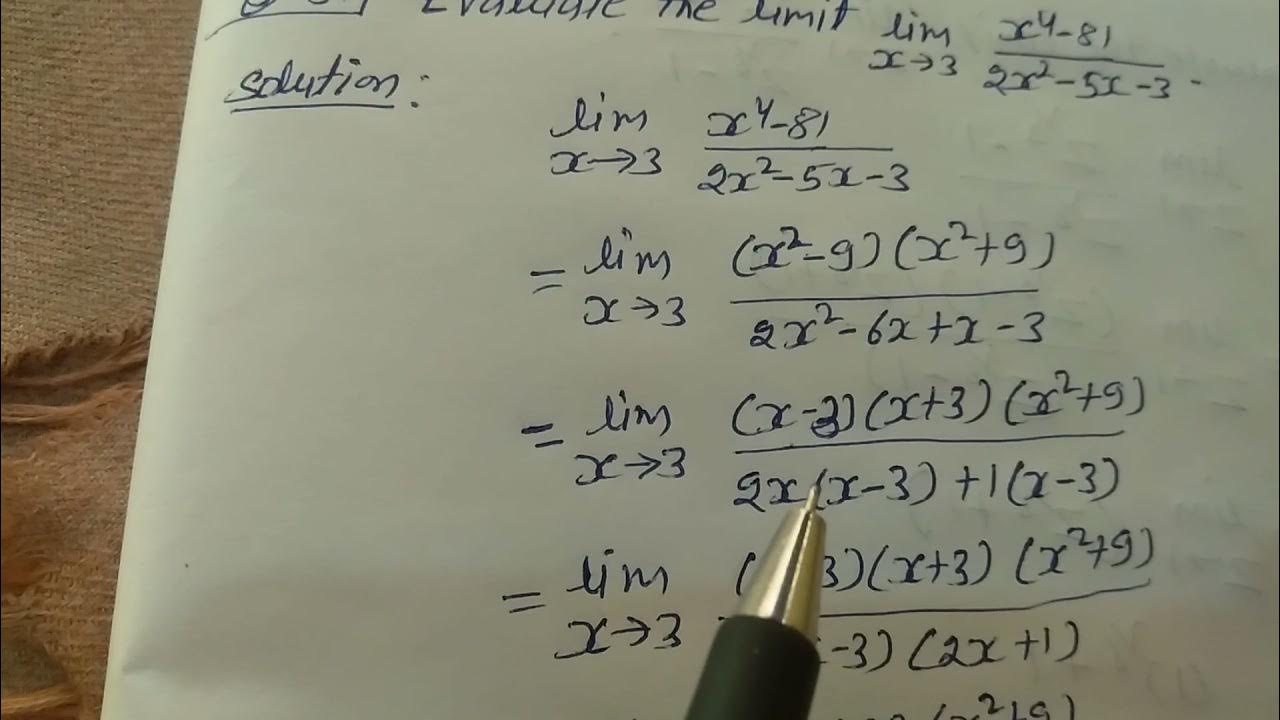 Evaluate the limit lim x→3 x⁴-81 / 2x²-5x-3 .
solution :
lim x→3 x⁴-81 / 2x²-5x-3
= lim x→3 (x²-9)(x²+9) / 2x²-6x+x-3
= lim x→3 (x-3)(x+3)(x²+9) / 2x(x-3)+1(x-3)
= lim x→3 ( 3)(x+3)(x²+9) / -3)(2x+1)
(x²+9)